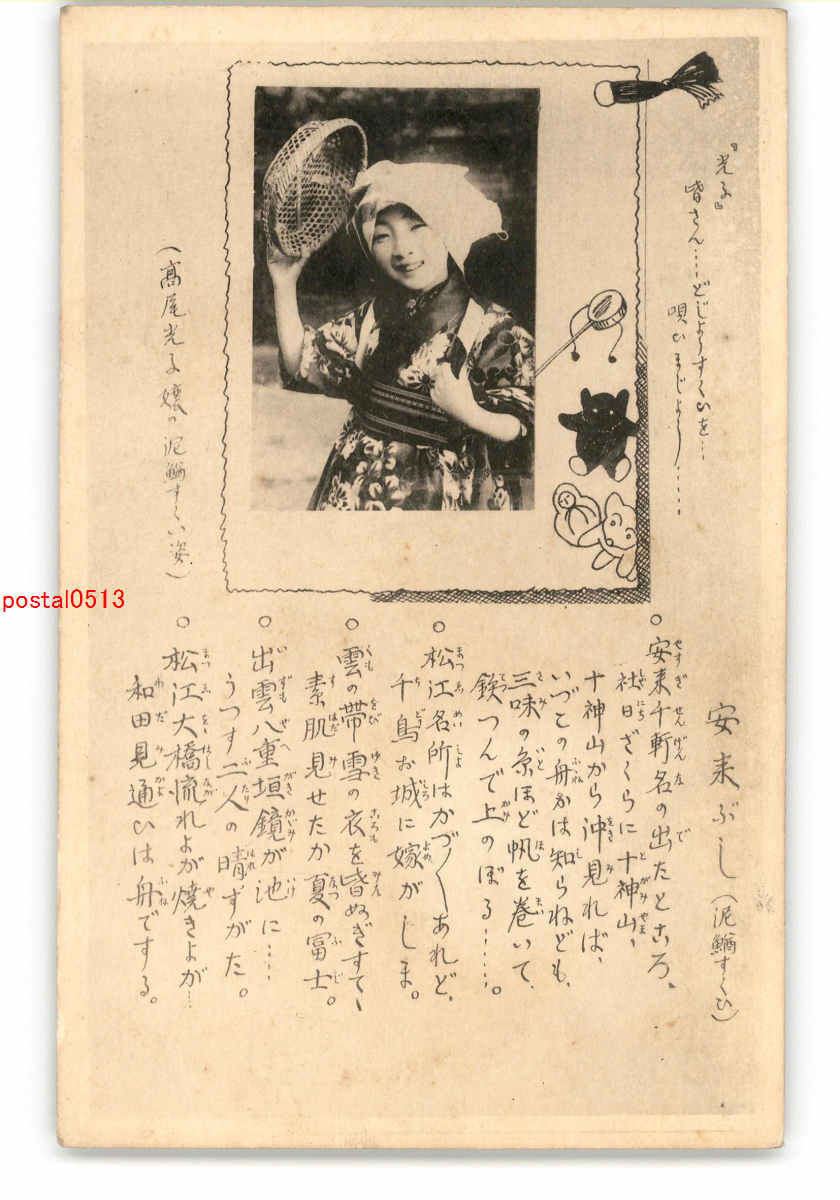 『光子』
皆さん……どじょうすくひを…
唄ひましょう……
(高尾光子嬢の泥鰌すくい姿)
安来ぶし(泥鰌すくひ)
○安来千軒名の出たところ、
社日ざくらに十神山、
十神山から沖見れば、
いづこの舟かは知らねども、
三味の糸ほど帆を巻いて、
鉄つんで上のぼる……。
○松江名所はかづ〱あれど、
千鳥お城に嫁がしま。
○雲の帯雪の衣を皆ぬぎすて、
素肌見せたか夏の富士。
○出雲八重垣鏡が池に……
うつす二人の晴すがた。
○松江大橋流れよが焼きよが…
和田見通ひは舟でする。
postal0513